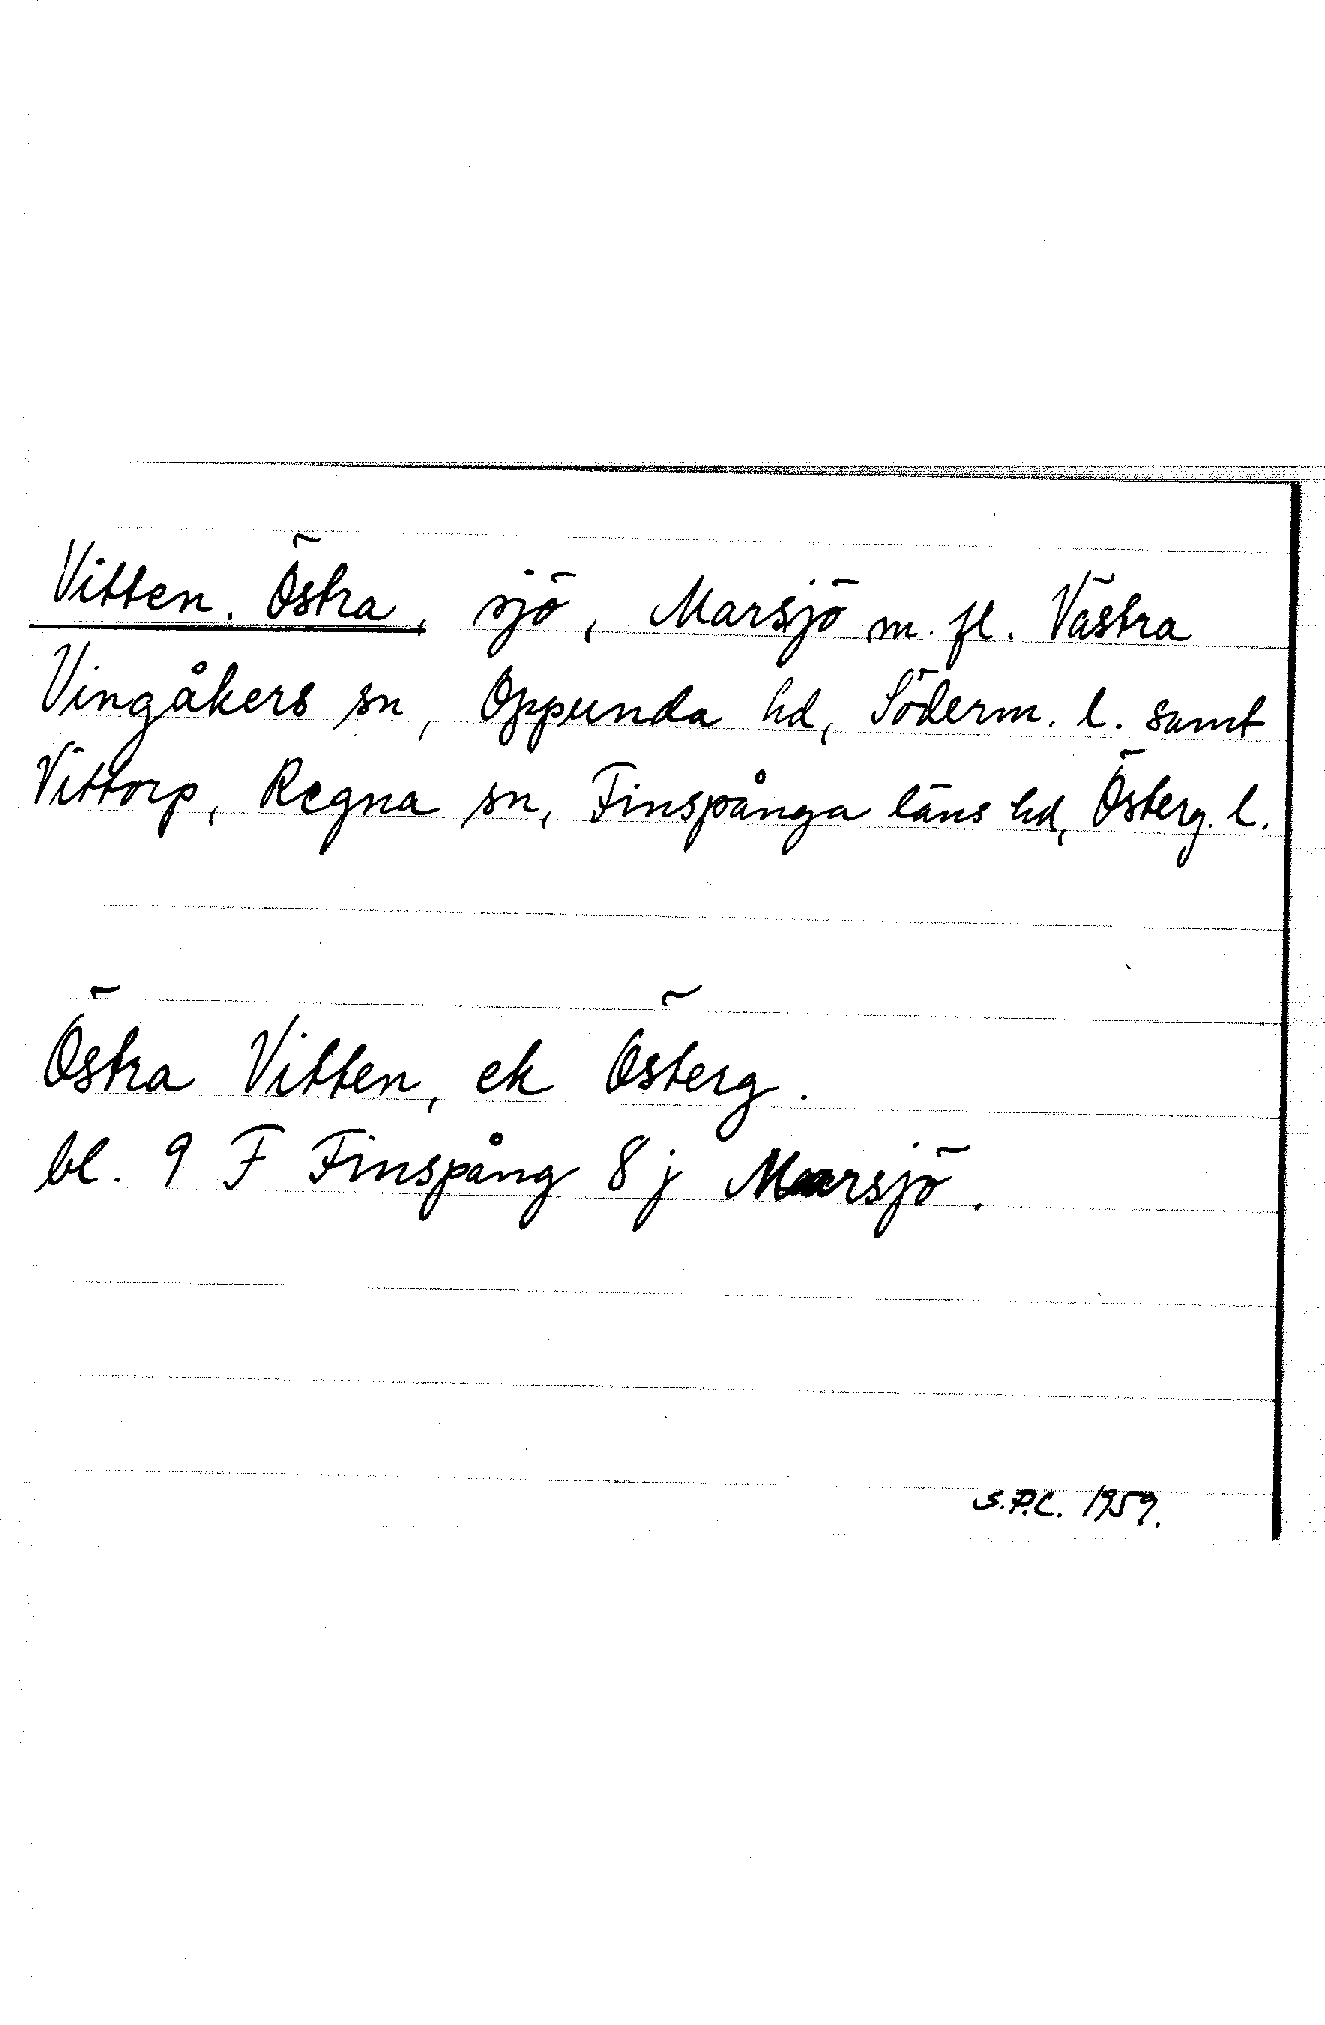 Vitten. Östra, sjö, Marsjö m. fl. Västra
Vingåkers sn, Oppunda hd, Söderm. l. samt
Vittorp, Regna sn, Finspånga läns hd, Österg. l.
Östra Vitten, ek Österg.
bl. 9 F Finspång 8 j Marsjö.
S.P.C. 1959.